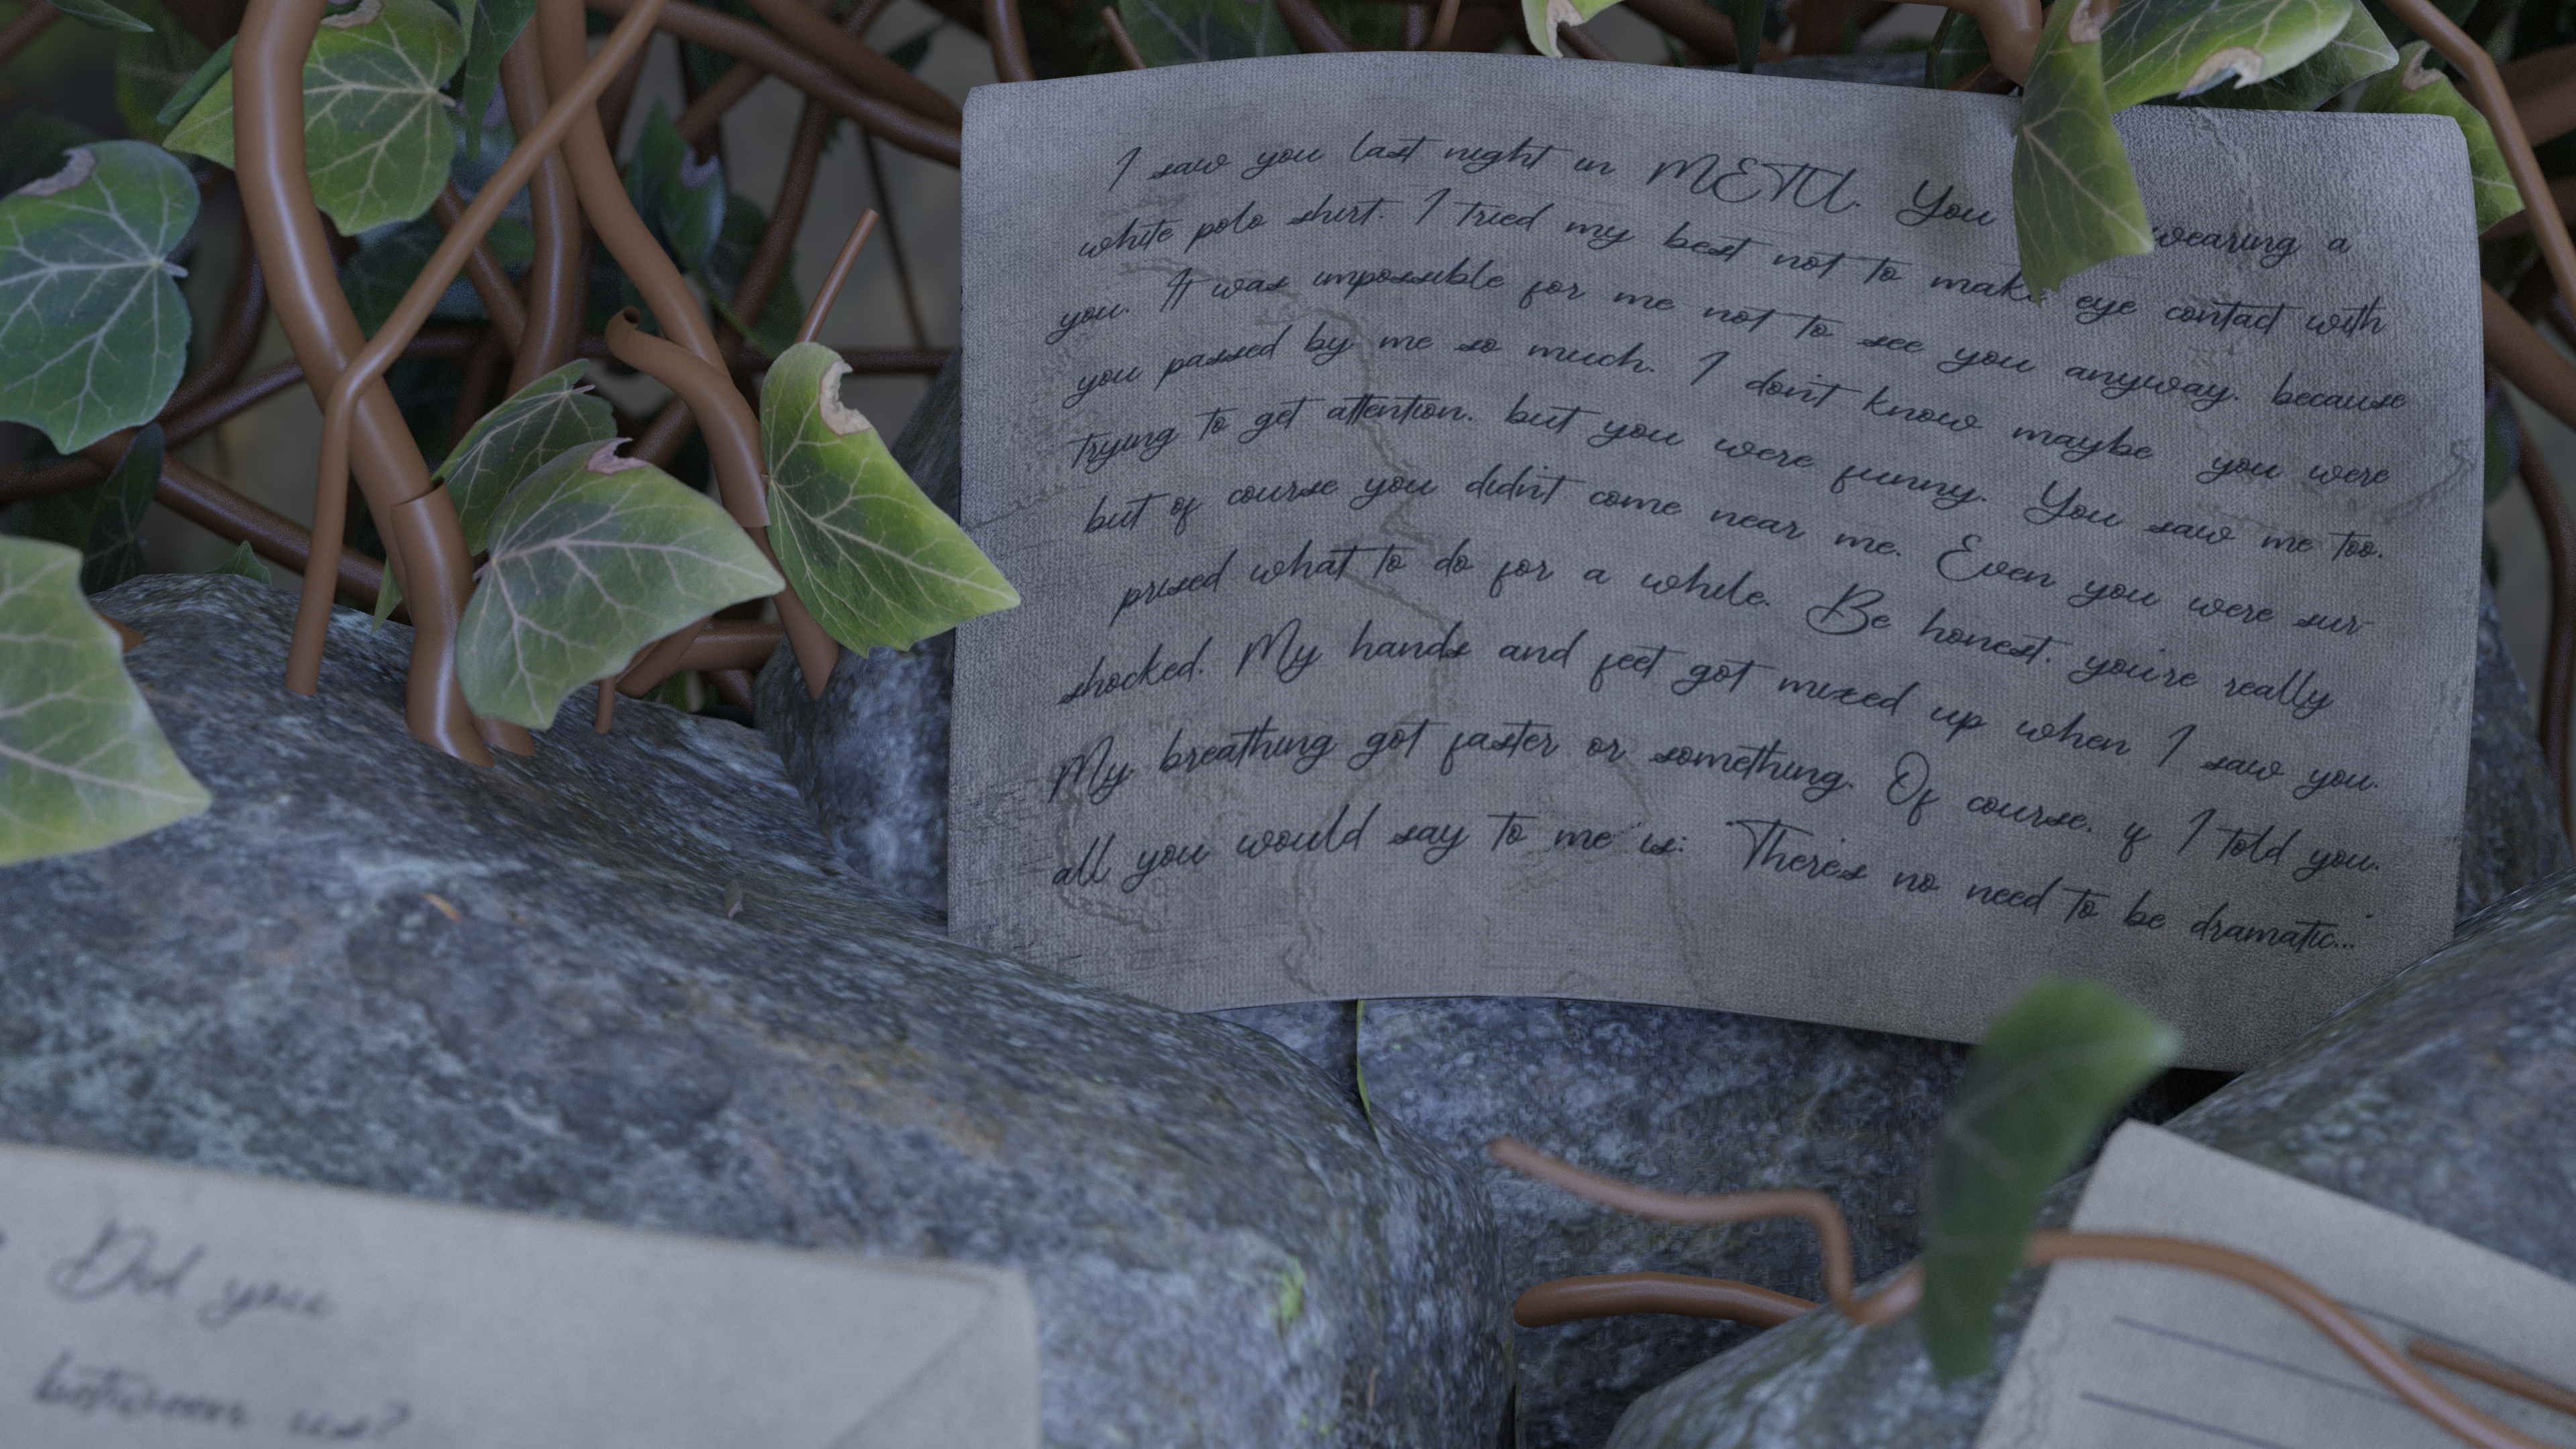 I saw you last night in METU. You wearing a
white polo shirt. I tried my best not to make eye contact with
you. It was impossible for me not to see you anyway, because
you passed by me so much. I don't know maybe you were
trying to get attention, but you were funny. You saw me too,
but of course you didn't come near me. Even you were sur-
prised what to do for a while. Be honest, you're really
shocked. My hands and feet got mixed up when I saw you.
My breathing got faster or something. Of course, if I told you,
all you would say to me is: "There's no need to be dramatic..."
Did you
between us?